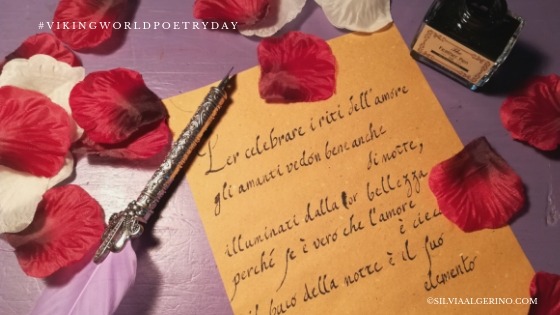 #VIKINGWORLDPOETRYDAY
Per celebrare i riti dell'amore
gli amanti vedon bene anche
di notte,
illuminati dalla lor bellezza
perché se è vero che l'amore
è ciec
il buio della notte è il suo
elemento
©SILVIAALGERINO.COM